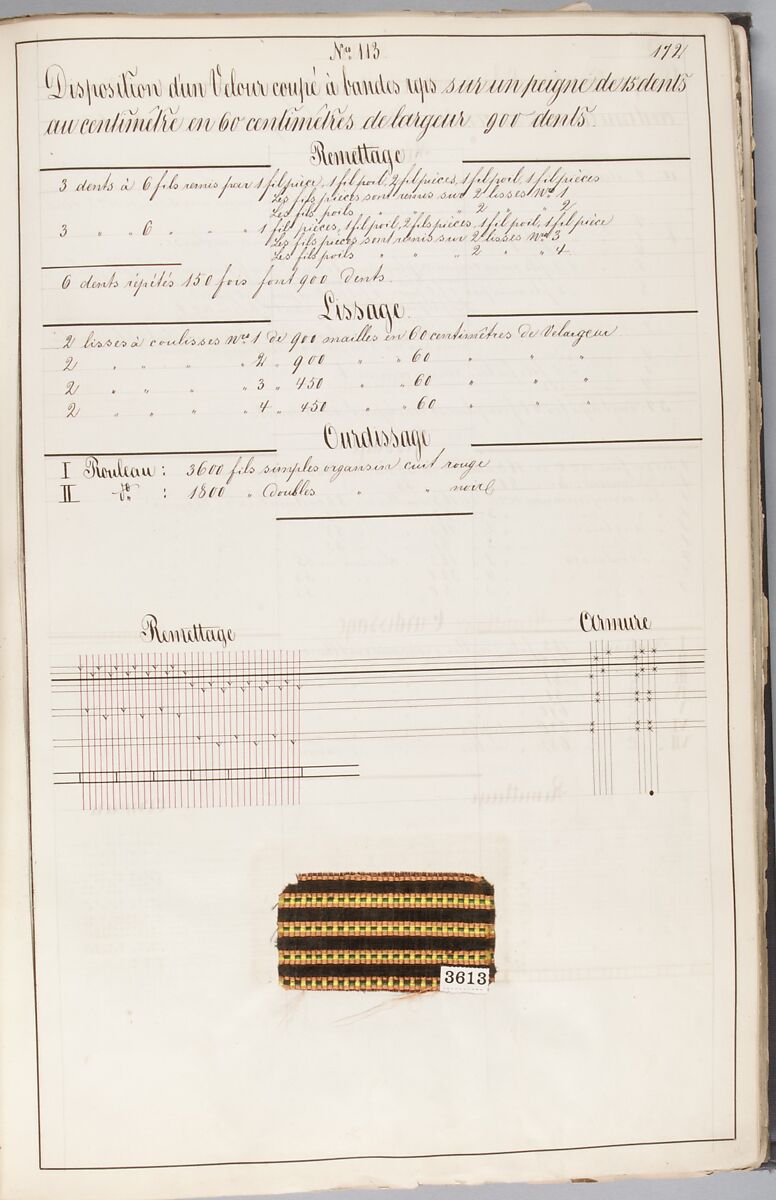 Nº 113
172
Disposition d'un Velour coupé à bandes reps sur un peigne de 15 dents
au centimêtre en 60 centimêtres de largeur 900 dents.
Remettage
3 dents à 6 fils remis pour 1 fil pièce, 1 fil poil, 2 fil pièces, 1 fil poil, 1 fil pièces
Les fils pièces sont remis sur 2 lisses Nº 1
Les fils poils " " " 2 " " 2
3 " " 6 " " " 1 fil pièces, 1 fil poil, 2 fils pièces, 1 fil poil, 1 fil pièce
Les fils pièces sont remis sur 2 lisses Nº 3
Les fils poils " " " 2 " " 4
6 dents répétés 150 fois font 900 Dents.
Lissage.
2 lisses à coulisses Nº 1 de 900 mailles en 60 centimêtres de largeur
2 " " " " 2 " 900 " " 60 " " "
2 " " " " 3 " 450 " " 60 " " "
2 " " " " 4 " 450 " " 60 " " "
Ourdissage
I Rouleau : 3600 fils simples organsin cuit rouge
II dº : 1800 " doubles " " noir
Remettage
Armure
3613